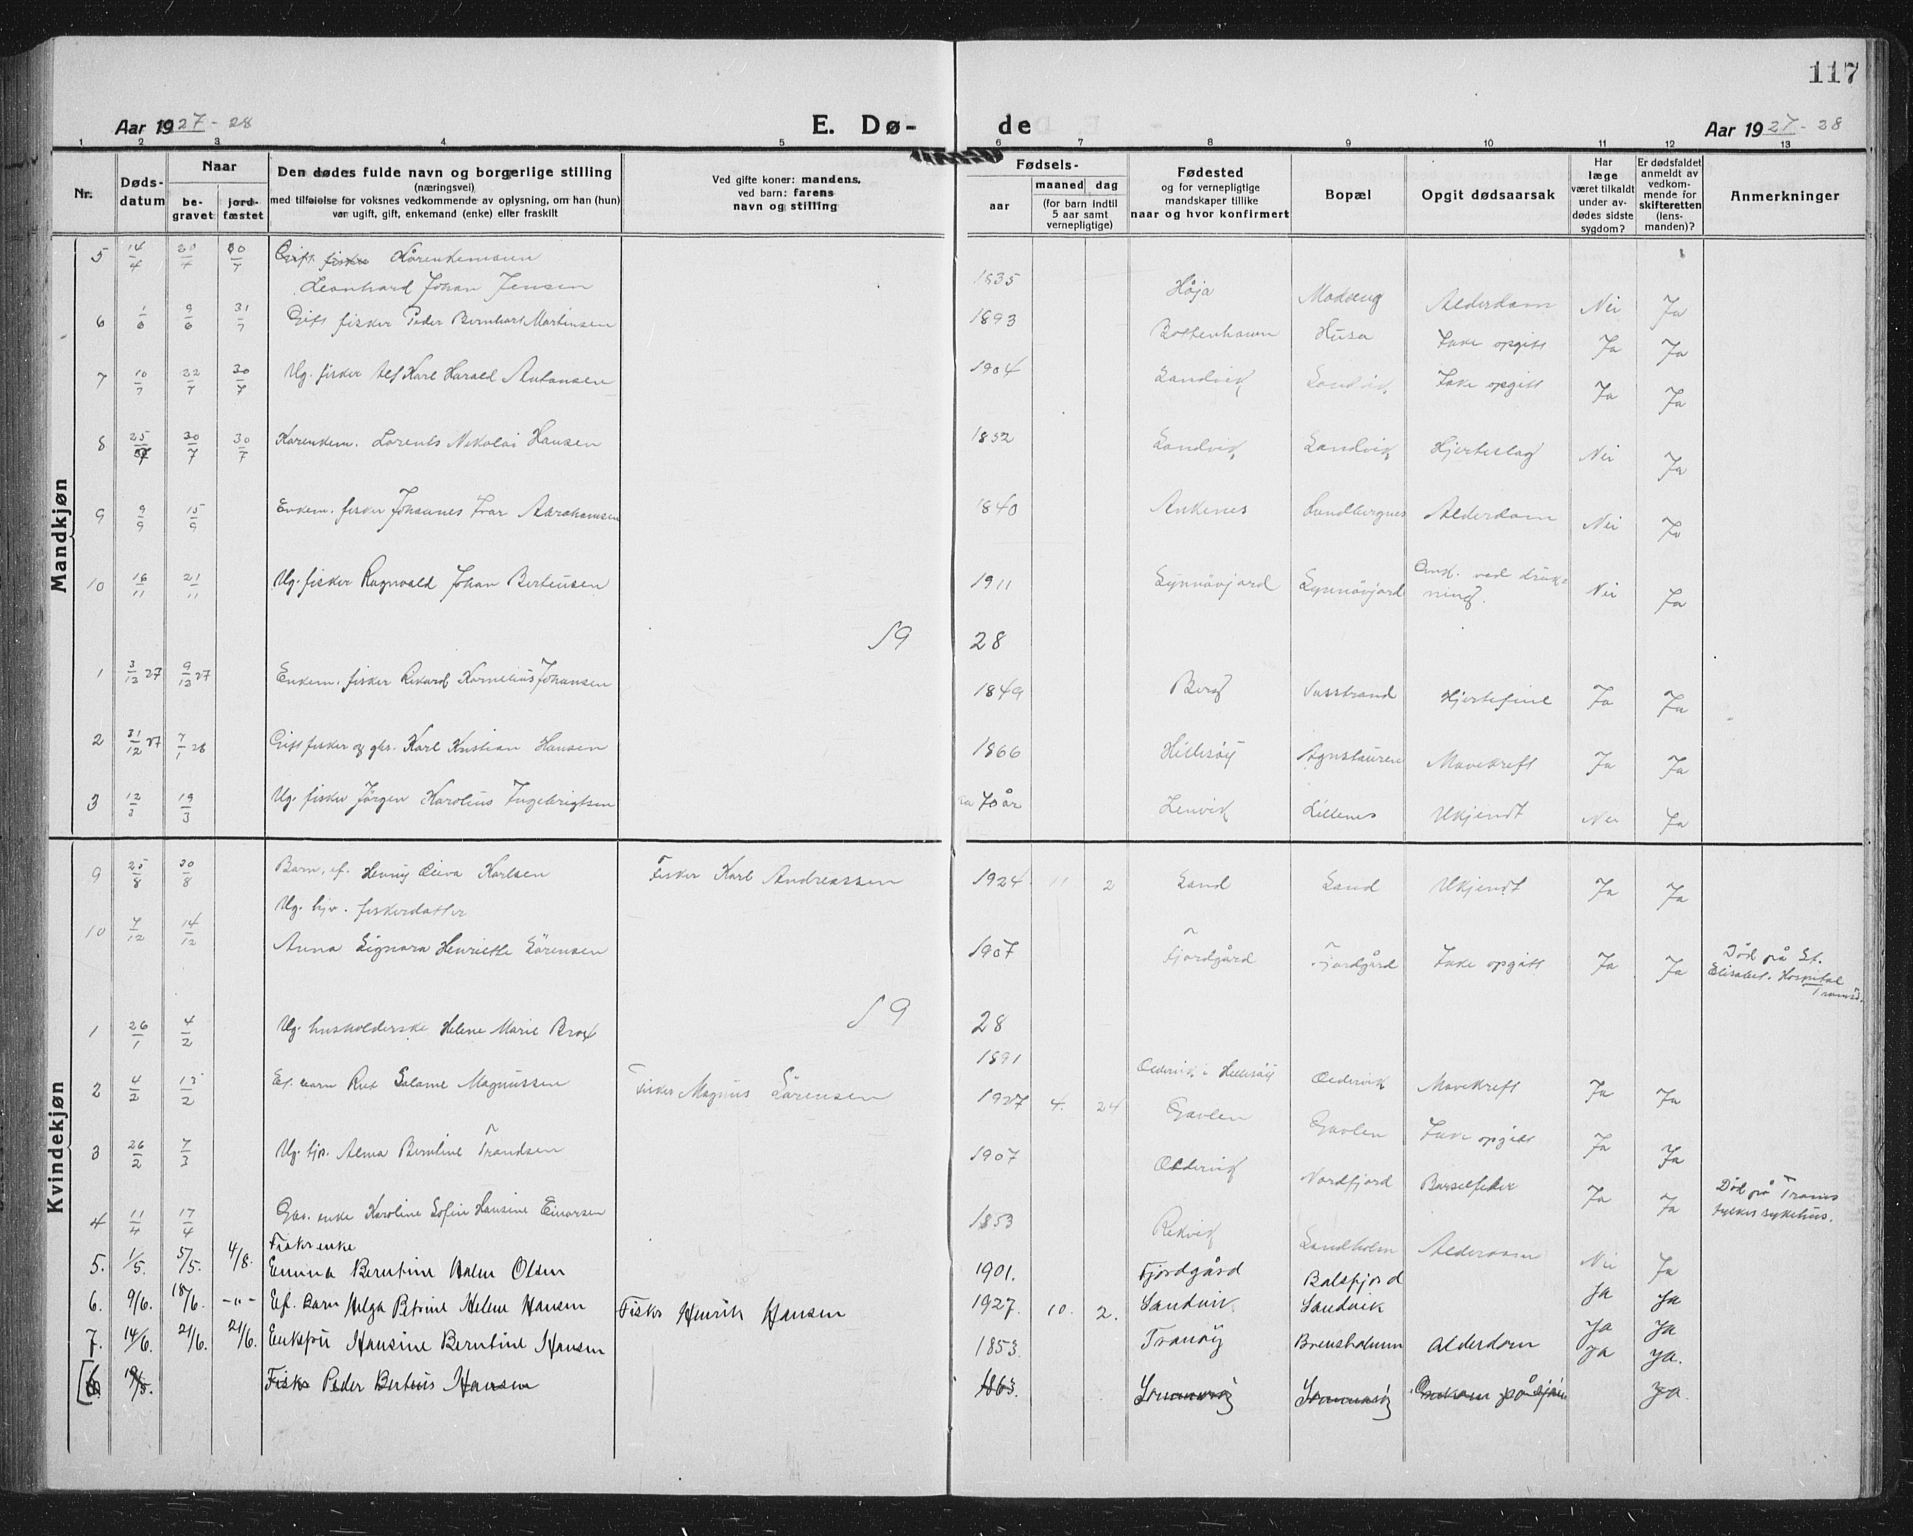 117
Aar 1927-28 E. Dø- de Aar 1927-28
1 2 3 4 5 6 7 8 9 10 11 12 13
Nr. Døds-datum Naar be-gravet jord-fæstet Den dødes fulde navn og borgerlige stilling (næringsvei) med tilføielse for voksnes vedkommende av oplysning, om han (hun) var ugift, gift, enkemand (enke) eller fraskilt Ved gifte koner: mandens, ved barn: farens navn og stilling Fødsels- aar maaned dag (for barn indtil 5 aar samt vernepligtige) Fødested og for vernepligtige mandskaper tillike naar og hvor konfirmert Bopæl Opgit dødsaarsak Har læge været tilkaldt under av-dødes sidste sygdom? Er dødsfaldet anmeldt av vedkom-mende for skifteretten (lens-manden)? Anmerkninger
Mandkjøn
5 14/4 30/7 30/7 Gift fisker Kårenkemann
Leonhard Johan Jensen 1835 Høja Alderdom Nei Ja
6 9/6 31/7 Gift fisker Peder Bernhart Martinsen 1893 Bottenhavn Husa Ikke opgitt Ja Ja
7 10/7 22/7 30/7 Ug. fisker Karl Harald Antonsen 1904 Sandvik Sandvik Ikke opgitt Ja Ja
8 25/7 30/7 30/7 Kårenkem. Lorents Nikolai Hansen 1852 Sandvik Sandvik Hjerteslag Nei Ja
9 9/9 15/9 Enkem. fisker Johannes Ivar Abrahamsen 1840 Ankenes Sandbergnes Alderdom Nei Ja
10 16/11 21/11 Ug. fisker Ragnvald Johan Berteusen 1911 Lynnövjord Lynnövjord Omk. ved druk-
ning. Nei Ja
19 28
1 3/12 27 9/12 27 Enkem. fisker Rikard Kornelius Johansen 1849 Berg Hjertefeil Ja Ja
2 31/12 27 7/1 28 Gift fisker og gbr. Karl Kristian Hansen 1866 Hillesöy Mavekreft Ja Ja
3 12/3 19/3 Ug. fisker Jörgen Karolius Ingebrigtsen ca 70 år Lenvik Lillenes Ukjendt Nei Ja
Kvindekjøn
9 25/8 30/8 Barn. ef. Henny Karlsen Fisker Karl Andreassen 1924 11 2 Sand Sand Ukjendt Ja Ja
Ug. hjv. fiskerdatter
10 7/12 14/12 Anna Signora Henriette Sörensen 1907 Fjordgård Fjordgård Ikke opgitt Ja Ja Död på St.
Elisabet. Hospital
Tromsö.
19 28
1 26/1 4/2 Ug. husholderske Helene Marie Brox 1891 Oldervik i Hillesöy Oldervik Mavekreft Ja Ja
2 4/2 13/2 Ef. barn Rut Salome Magnussen Fisker Magnus Sörensen 1927 4. 24 Gavlen Gavlen Ikke opgitt Ja Ja
3 26/2 7/3 Ug. tjv. Alma Berntine Trandsen 1907 Oldervik Nordfjord Barselfeber Ja Ja Död på Troms
fylkes sykehus.
4 11/4 17/4 enke Karoline Sofie Hansine Einarsen 1853 Rekvik Sandholm Alderdom Nei Ja
Fiskerenke
5. 1/5. 5/5. 4/8. Emma Berntine Olsen 1901. Fjordgård Balsfjord Ja Ja
6. 9/6. 18/6. -"- Ef. Barn Helga Petrine Helene Hansen Fisker Henrik Hansen 1927. 10. 2. Sandvik Sandvik Ja Ja
7. 14/6. 21/6. 21/6. Enkefru Hansine Berntine Hansen 1853. Tranöy Brensholmen Alderdom Ja Ja.
[6 19/5. Fisker Peder Berteus Hansen 1863. Sommaröy Sommaröy Omkom på sjöen Ja.